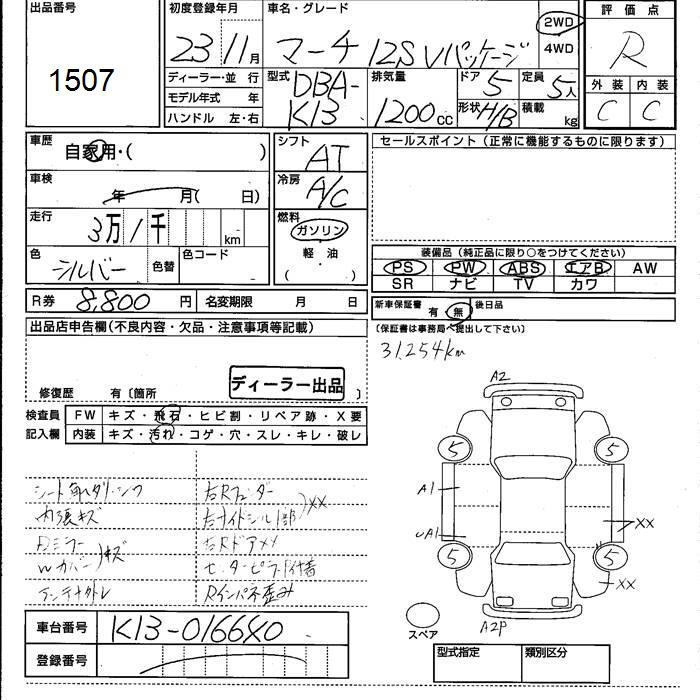 出品番号
1507
初度登録年月
23 11月
車名・グレード
マーチ 12S Vパッケージ
2WD
4WD
評価点
R
ディーラー・並 行
モデル年式 年
ハンドル 左・右
型式
DBA-
K13
排気量
1200cc
ドア 5
形状 H/B
定員 5人
積載 kg
外装 内装
C C
車歴
自家用・( )
車検
年 月( 日)
走行
3万1千 km
色
シルバー
色替
色コード
シフト
AT
冷房
A/C
燃料
ガソリン
軽・油
( )
セールスポイント (正常に機能するものに限ります)
装備品(純正品に限り○をつけてください)
PS PW ABS エアB AW
SR ナビ TV カワ
R券 8,800円 名変期限 月 日
新車保証書 有・無 後日品
(保証書は事務局へ提出して下さい)
31,254km
出品店申告欄(不良内容・欠品・注意事項等記載)
ディーラー出品
修復歴 有〔箇所 〕
検査員 FW キズ・飛石・ヒビ割・リペア跡・X要
記入欄 内装 キズ・汚れ・コゲ・穴・スレ・キレ・破レ
内張キズ
Dミラー
Wカバー キズ
アンテナナシ
右Rフェンダー
右サイドシル1部 XX
右Rドア
センターピラー
Rインパネ歪み
A2
5 5
A1
UA1
XX
5 5
XX
A2P
スペア
車台番号 K13-016640
登録番号
型式指定 類別区分